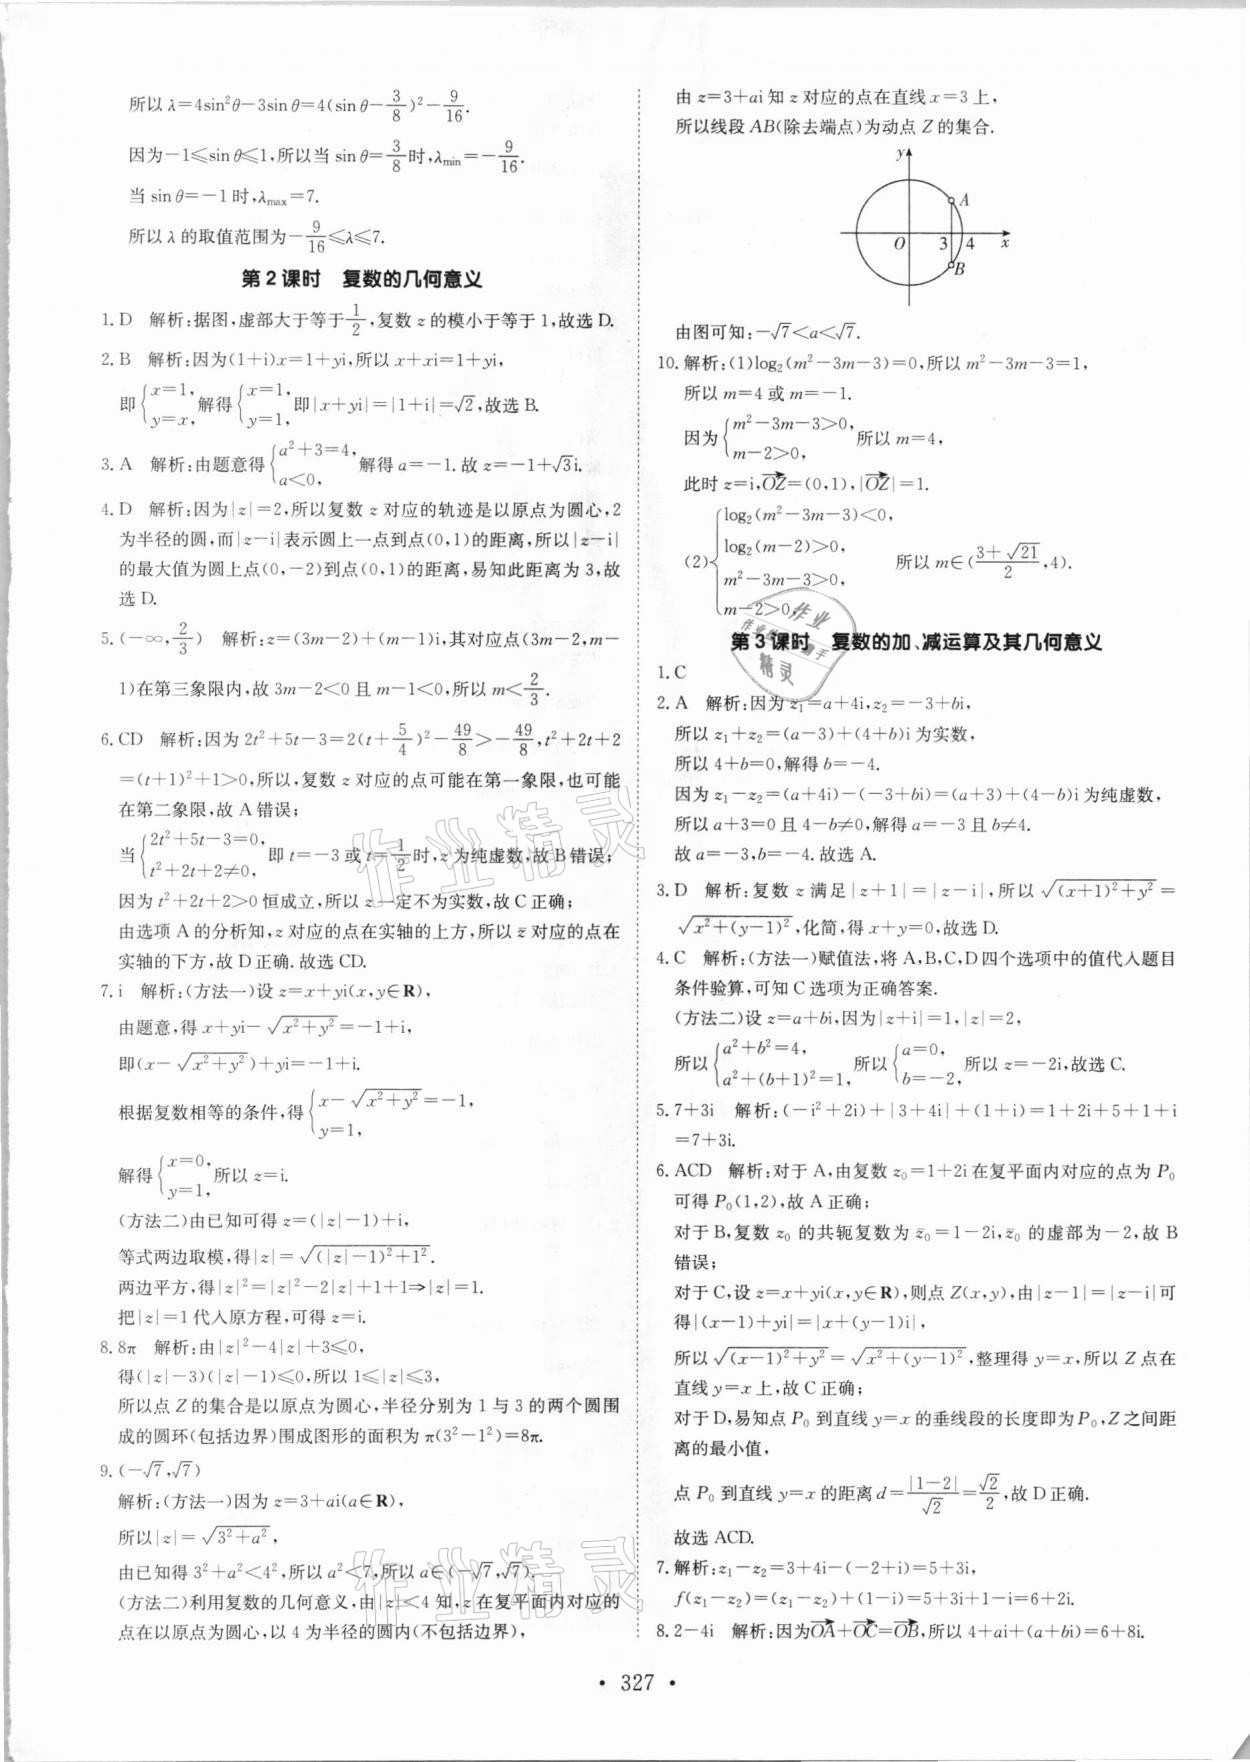 所以 λ=4sin²θ−3sin θ=4(sin θ−3/8)²−9/16.
因为−1≤sin θ≤1,所以当 sin θ=3/8时,λmin=−9/16.
当 sin θ=−1 时,λmax=7.
所以 λ 的取值范围为−9/16≤λ≤7.
第2课时 复数的几何意义
1. D 解析:据图,虚部大于等于1/2,复数 z 的模小于等于 1,故选 D.
2. B 解析:因为(1+i)x=1+yi,所以 x+xi=1+yi,
即{x=1, y=x, 解得{x=1, y=1, 即|x+yi|=|1+i|=√2,故选 B.
3. A 解析:由题意得{a²+3=4, a<0, 解得 a=−1. 故 z=−1+√3i.
4. D 解析:因为|z|=2,所以复数 z 对应的轨迹是以原点为圆心,2
为半径的圆,而|z−i|表示圆上一点到点(0,1)的距离,所以|z−i|
的最大值为圆上点(0,−2)到点(0,1)的距离,易知此距离为 3,故
选 D.
5. (−∞,2/3) 解析:z=(3m−2)+(m−1)i,其对应点(3m−2,m−
1)在第三象限内,故 3m−2<0 且 m−1<0,所以 m<2/3.
6. CD 解析:因为 2t²+5t−3=2(t+5/4)²−49/8>−49/8,t²+2t+2
=(t+1)²+1>0,所以,复数 z 对应的点可能在第一象限,也可能
在第二象限,故 A 错误;
当{2t²+5t−3=0, t²+2t+2≠0, 即 t=−3 或 t=1/2时,z 为纯虚数,故 B 错误;
因为 t²+2t+2>0 恒成立,所以 z 一定不为实数,故 C 正确;
由选项 A 的分析知,z 对应的点在实轴的上方,所以 z̄ 对应的点在
实轴的下方,故 D 正确. 故选 CD.
7. i 解析:(方法一)设 z=x+yi(x,y∈R),
由题意,得 x+yi−√(x²+y²)=−1+i,
即(x−√(x²+y²))+yi=−1+i.
根据复数相等的条件,得{x−√(x²+y²)=−1, y=1,
解得{x=0, y=1, 所以 z=i.
(方法二)由已知可得 z=(|z|−1)+i,
等式两边取模,得|z|=√((|z|−1)²+1²).
两边平方,得|z|²=|z|²−2|z|+1+1⇒|z|=1.
把|z|=1 代入原方程,可得 z=i.
8. 8π 解析:由|z|²−4|z|+3≤0,
得(|z|−3)(|z|−1)≤0,所以 1≤|z|≤3,
所以点 Z 的集合是以原点为圆心,半径分别为 1 与 3 的两个圆围
成的圆环(包括边界)围成图形的面积为 π(3²−1²)=8π.
9. (−√7,√7)
解析:(方法一)因为 z=3+ai(a∈R),
所以|z|=√(3²+a²),
由已知得 3²+a²<4²,所以 a²<7,所以 a∈(−√7,√7).
(方法二)利用复数的几何意义,由|z|<4 知,z 在复平面内对应的
点在以原点为圆心,以 4 为半径的圆内(不包括边界),
由 z=3+ai 知 z 对应的点在直线 x=3 上,
所以线段 AB(除去端点)为动点 Z 的集合.
y
A
O 3 4 x
B
由图可知:−√7<a<√7.
10. 解析:(1)log₂(m²−3m−3)=0,所以 m²−3m−3=1,
所以 m=4 或 m=−1.
因为{m²−3m−3>0, m−2>0, 所以 m=4,
此时 z=i,OZ→=(0,1),|OZ→|=1.
(2){log₂(m²−3m−3)<0, log₂(m−2)>0, m²−3m−3>0, m−2>0, 所以 m∈((3+√21)/2,4).
第3课时 复数的加、减运算及其几何意义
1. C
2. A 解析:因为 z₁=a+4i,z₂=−3+bi,
所以 z₁+z₂=(a−3)+(4+b)i 为实数,
所以 4+b=0,解得 b=−4.
因为 z₁−z₂=(a+4i)−(−3+bi)=(a+3)+(4−b)i 为纯虚数,
所以 a+3=0 且 4−b≠0,解得 a=−3 且 b≠4.
故 a=−3,b=−4. 故选 A.
3. D 解析:复数 z 满足|z+1|=|z−i|,所以 √((x+1)²+y²)=
√(x²+(y−1)²),化简,得 x+y=0,故选 D.
4. C 解析:(方法一)赋值法,将 A,B,C,D四个选项中的值代入题目
条件验算,可知 C 选项为正确答案.
(方法二)设 z=a+bi,因为|z+i|=1,|z|=2,
所以{a²+b²=4, a²+(b+1)²=1, 所以{a=0, b=−2, 所以 z=−2i,故选 C.
5. 7+3i 解析:(−i²+2i)+|3+4i|+(1+i)=1+2i+5+1+i
=7+3i.
6. ACD 解析:对于 A,由复数 z₀=1+2i 在复平面内对应的点为 P₀
可得 P₀(1,2),故 A 正确;
对于 B,复数 z₀ 的共轭复数为 z̄₀=1−2i,z̄₀ 的虚部为−2,故 B
错误;
对于 C,设 z=x+yi(x,y∈R),则点 Z(x,y),由|z−1|=|z−i|可
得|(x−1)+yi|=|x+(y−1)i|,
所以√((x−1)²+y²)=√(x²+(y−1)²),整理得 y=x,所以 Z 点在
直线 y=x 上,故 C 正确;
对于 D,易知点 P₀ 到直线 y=x 的垂线段的长度即为 P₀,Z 之间距
离的最小值,
点 P₀ 到直线 y=x 的距离 d=|1−2|/√2=√2/2,故 D 正确.
故选 ACD.
7. 解析:z₁−z₂=3+4i−(−2+i)=5+3i,
f(z₁−z₂)=(z₁−z₂)+(1−i)=5+3i+1−i=6+2i.
8. 2−4i 解析:因为OA→+OC→=OB→,所以 4+ai+(a+bi)=6+8i.
• 327 •
作业精灵
作业精灵